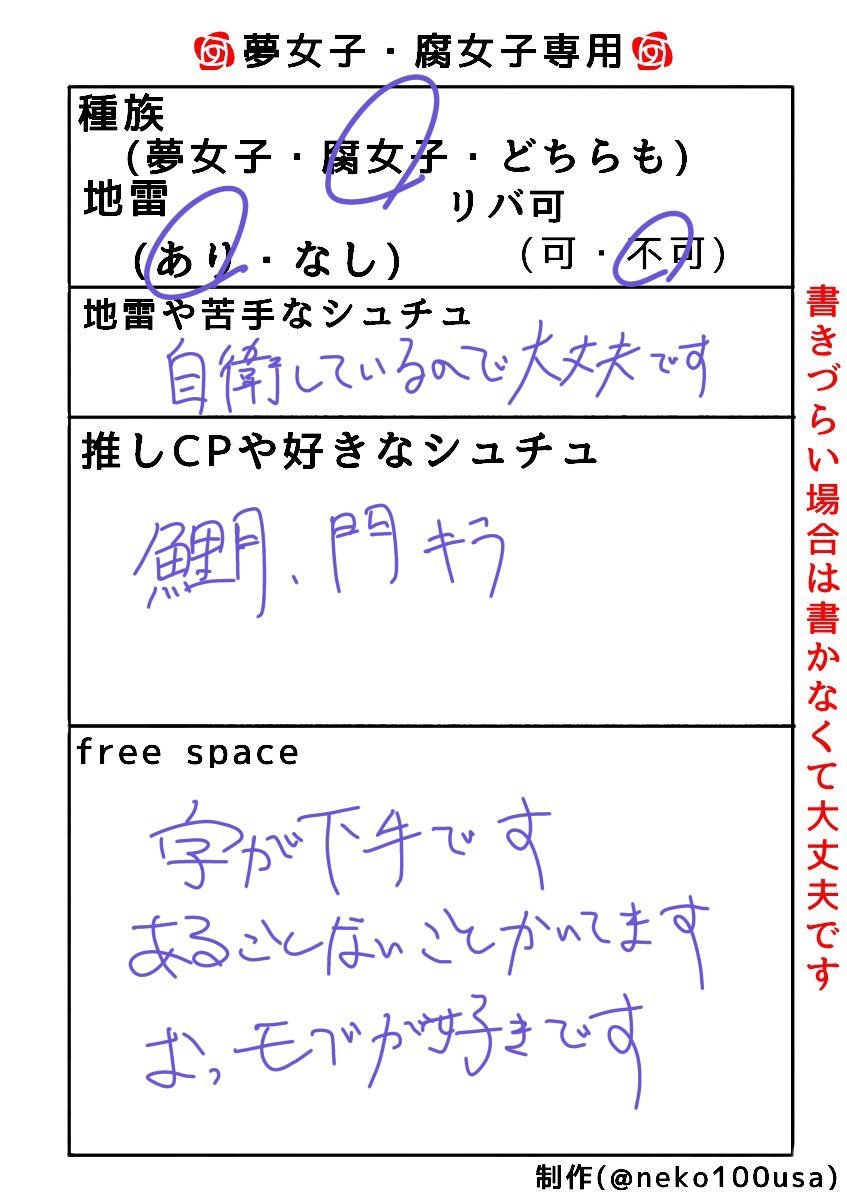 夢女子・腐女子専用
種族
(夢女子・腐女子・どちらも)
地雷
リバ可
(あり・なし)
(可・不可)
地雷や苦手なシュチュ
自衛しているので大丈夫です
推しCPや好きなシュチュ
鯉月、門キラ
free space
字が下手です
あることないことかいてます
おっモブが好きです
書きづらい場合は書かなくて大丈夫です
制作(@neko100usa)